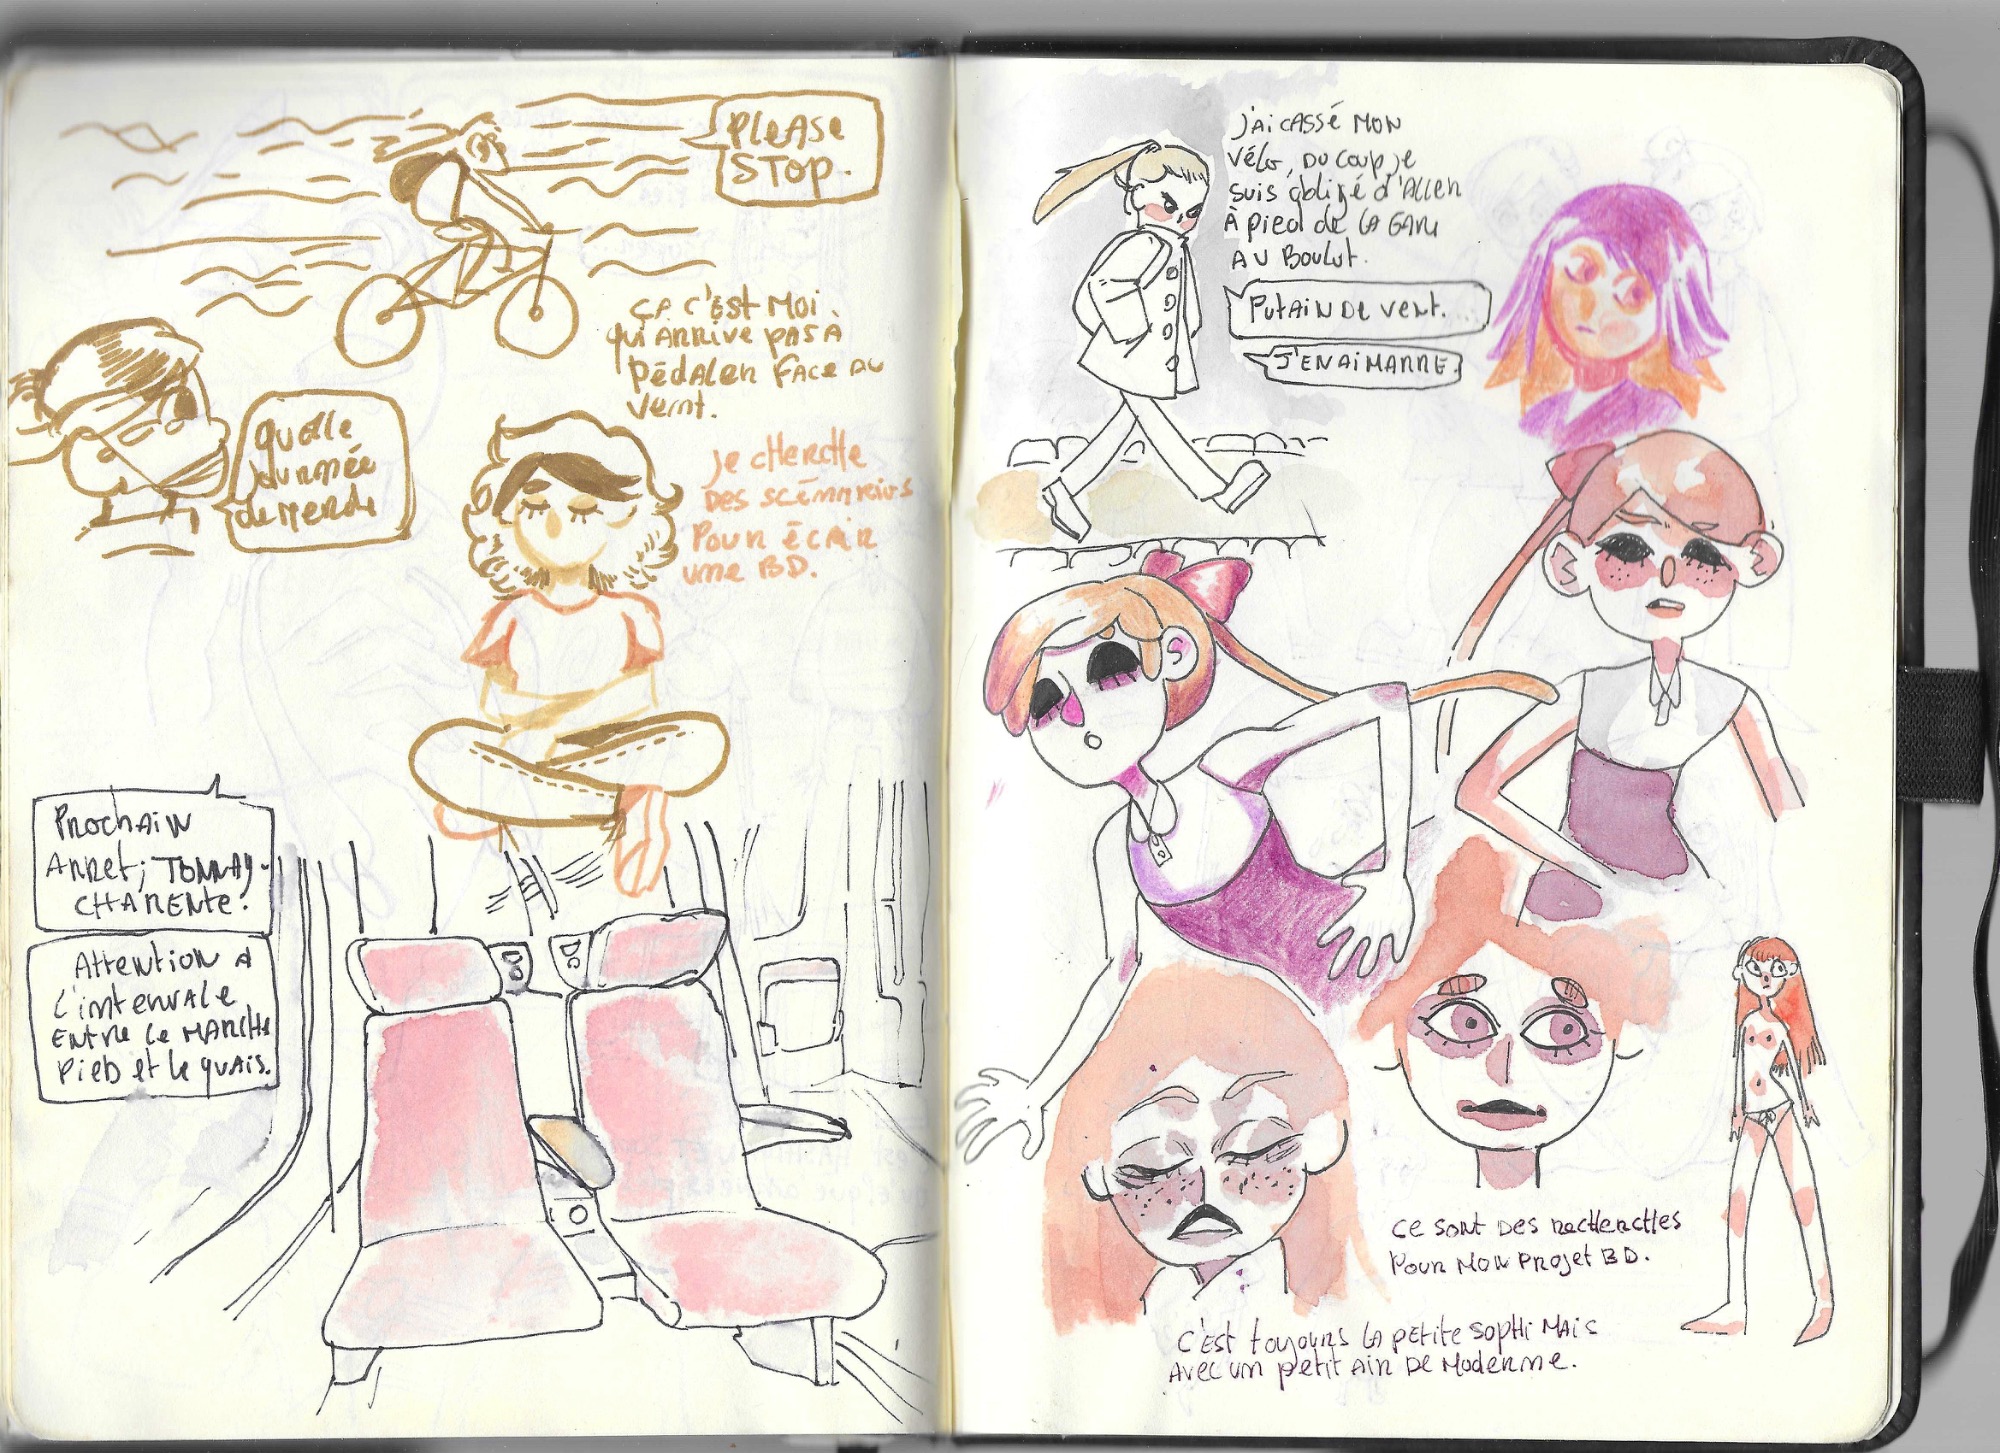 PLEASE
STOP.
ÇA C'EST MOI.
QUI ARRIVE PAS A
PÉDALER FACE AU
VENT.
Quelle
journée
de merde
Je CHERCHE
DES SCÉNARIOS
POUR ÉCRIR
UNE BD.
PROCHAIN
ARRET; TONNAY-
CHARENTE.
ATTENTION A
L'INTERVALE
ENTRE LE MARCHE
PIED ET LE QUAIS.
J'AI CASSÉ MON
VÉLO, DU COUP, JE
SUIS OBLIGÉ D'ALLER
À PIED DE LA GARE
AU BOULOT.
PUTAIN DE VENT.
J'EN AI MARRE.
CE SONT DES RECHERCHES
POUR MON PROJET BD.
C'EST TOUJOURS LA PETITE SOPHI MAIS
AVEC UN PETIT AIR DE MODERNE.